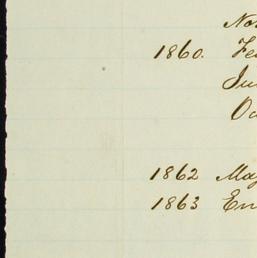 No
1860. Fe
Ju
Oc
1862 May
1863 En